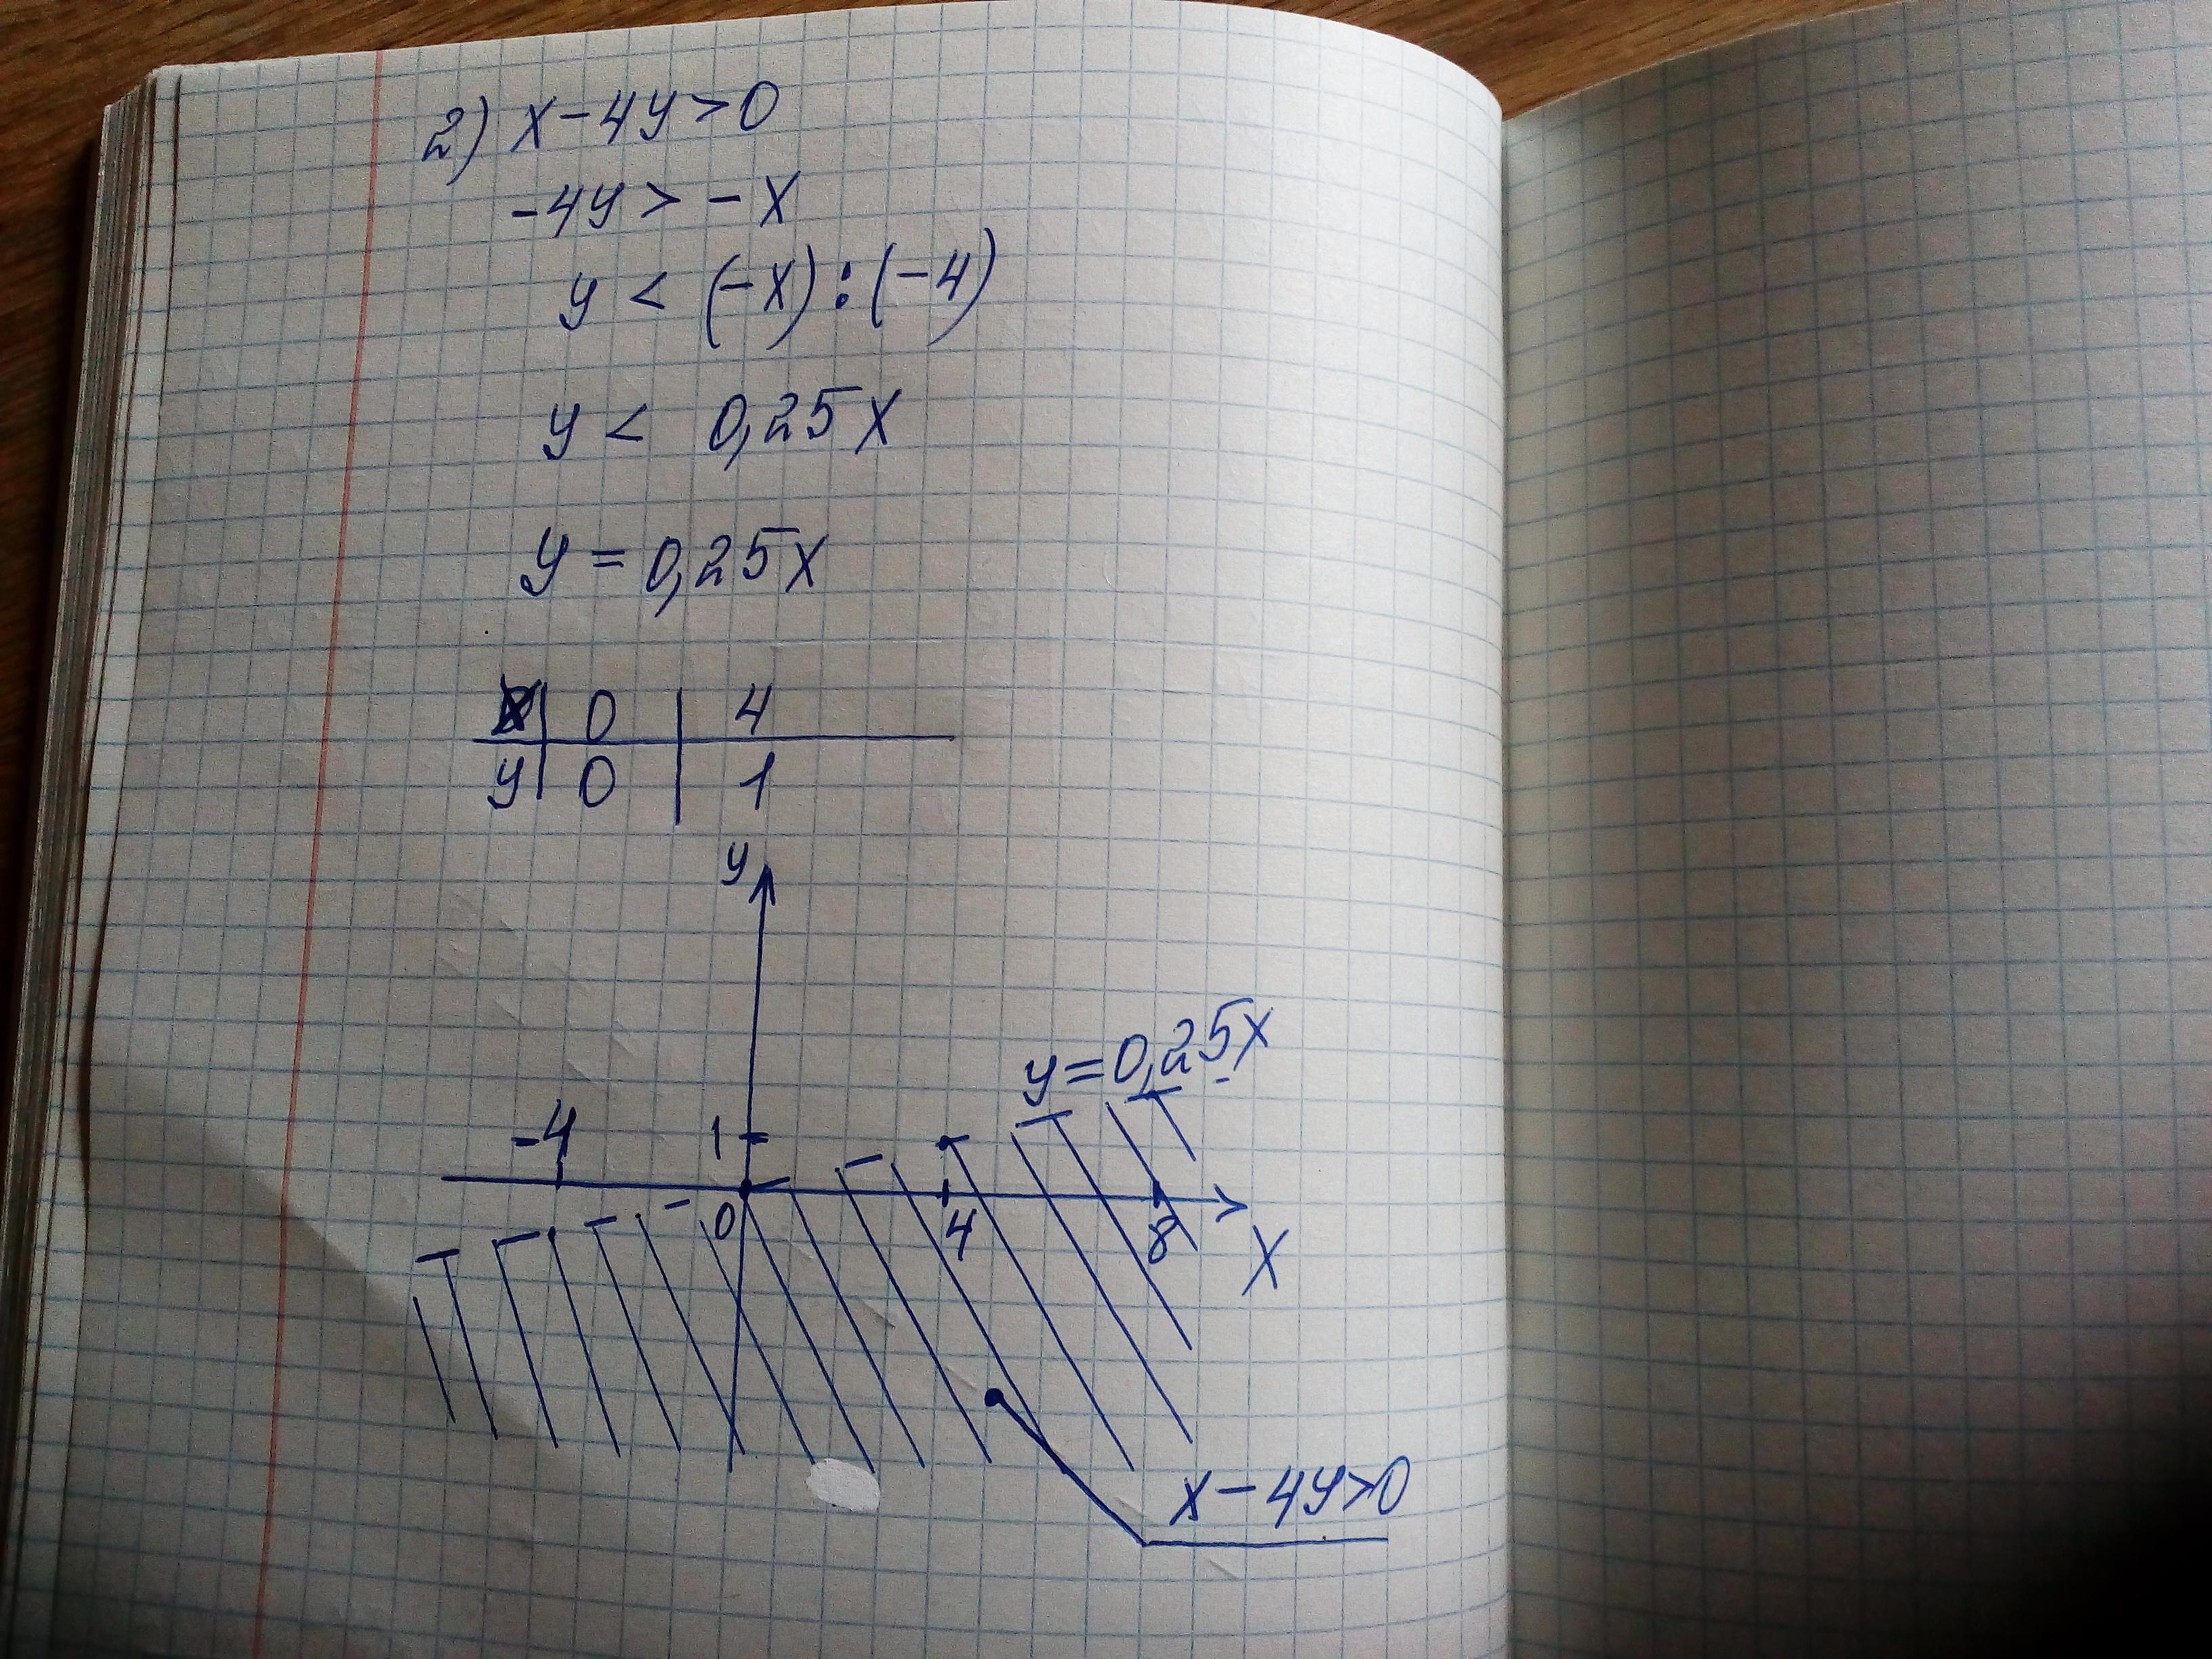 2) x-4y>0
-4y>-x
y<(-x):(-4)
y< 0,25x
y=0,25x
x 0 4
y 0 1
y
y=0,25x
-4 1
0 4 8
x
x-4y>0